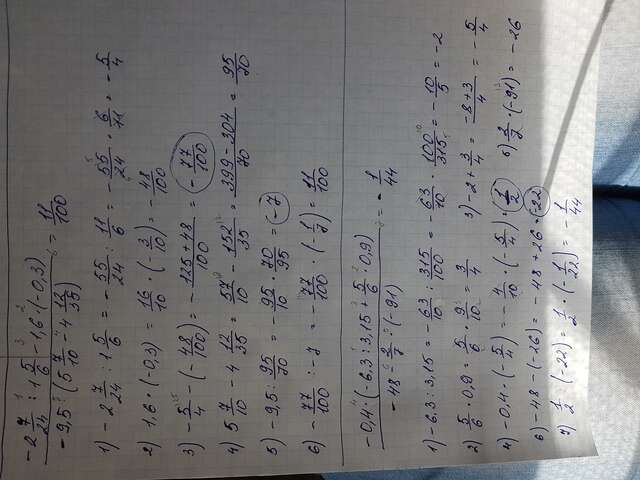 -2 7/24 : 1 5/6 - 1,6 · (-0,3)
-9,5 : (5 7/10 - 4 12/35) = 11/100
1) -2 7/24 : 1 5/6 = -55/24 : 11/6 = -55/24 · 6/11 = -5/4
2) 1,6 · (-0,3) = 16/10 · (-3/10) = -48/100
3) -5/4 - (-48/100) = -125+48/100 = -77/100
4) 5 7/10 - 4 12/35 = 57/10 - 152/35 = 399-304/70 = 95/70
5) -9,5 : 95/70 = -95/10 · 70/95 = -7
6) -77/100 : -7 = -77/100 · (-1/7) = 11/100
-0,4 · (-6,3 : 3,15 + 5/6 · 0,9)
-48 - 2/7 : (-91) = -1/44
1) -6,3 : 3,15 = -63/10 : 315/100 = -63/10 · 100/315 = -10/5 = -2
2) 5/6 · 0,9 = 5/6 · 9/10 = 3/4 3) -2 + 3/4 = -8+3/4 = -5/4
4) -0,4 · (-5/4) = -4/10 · (-5/4) = 1/2 5) 2/7 · (-91) = -26
6) -48 - (-26) = -48 + 26 = -22
7) 1/2 : (-22) = 1/2 · (-1/22) = -1/44